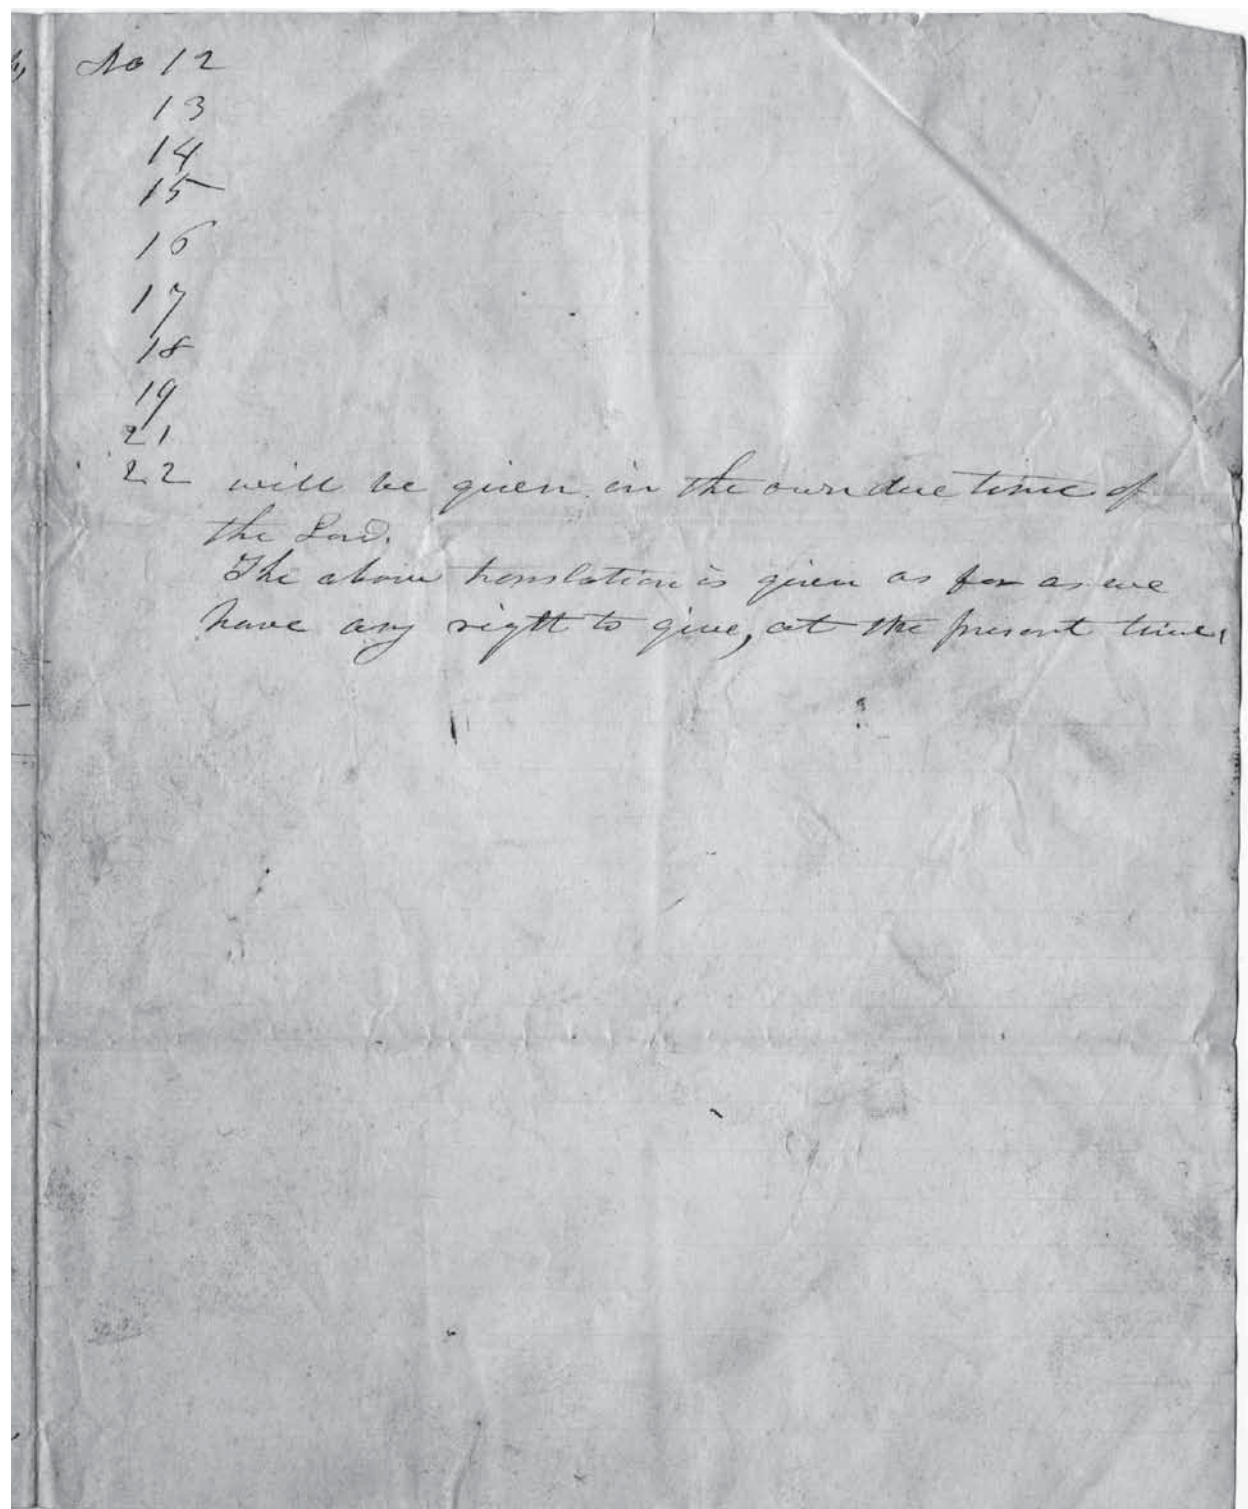 No 12
13
14
15
16
17
18
19
21
22 will be given in the own due time of
the Lord.
The above translation is given as far as we
have any right to give, at the present time,